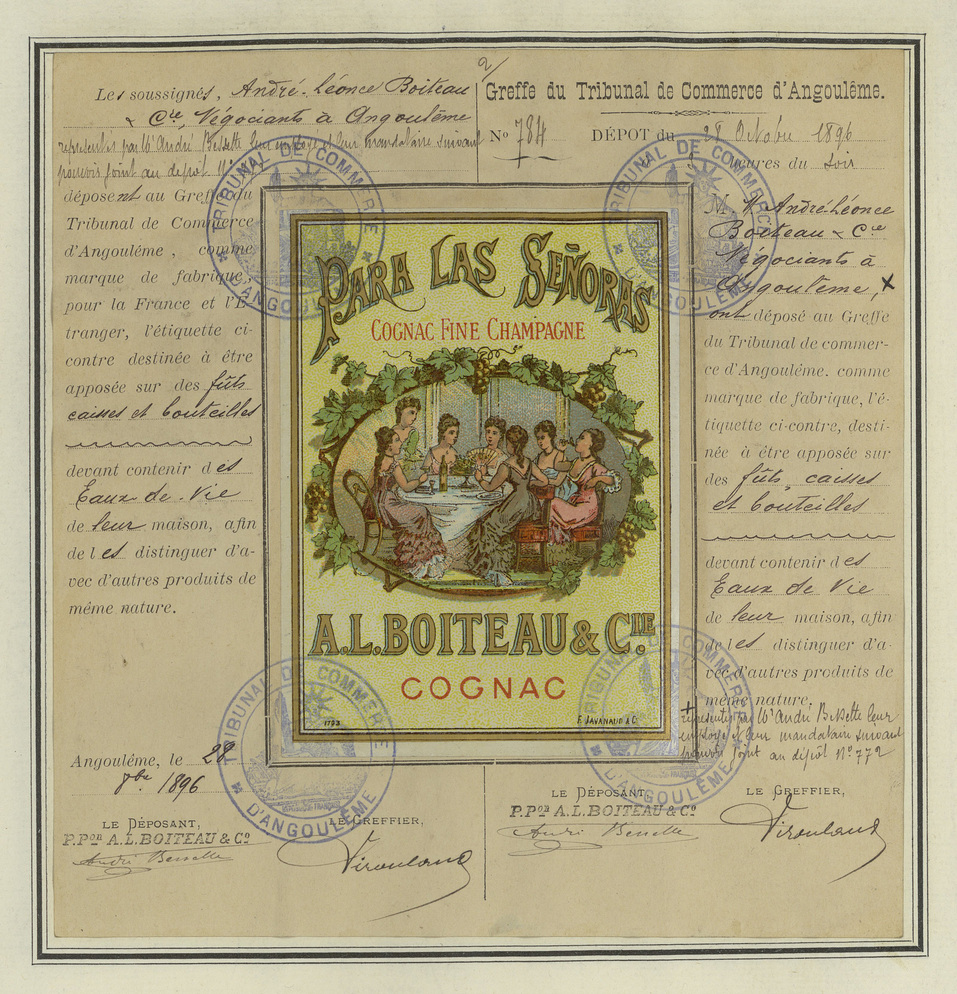 2/
Les soussignés, André-Léonce Boiteau
& Cie, Négociants à Angoulême
représentés par Mr André Bessette leur employé et leur mandataire suivant
pouvoir joint au dépôt No
déposent au Greffe du
Tribunal de Commerce
d'Angoulême, comme
marque de fabrique,
pour la France et l'E-
tranger, l'étiquette ci-
contre destinée à être
apposée sur des fûts
caisses et bouteilles
devant contenir des
Eaux-de-Vie
de leur maison, afin
de les distinguer d'a-
vec d'autres produits de
même nature.
Angoulême, le 28
8bre 1896
LE DÉPOSANT,
P.Pon A.L.BOITEAU & Co
André Bessette
LE GREFFIER,
PARA LAS SEÑORAS
COGNAC FINE CHAMPAGNE
A.L.BOITEAU & CIE
COGNAC
1793
F. JAVANAUD & Co
Greffe du Tribunal de Commerce d'Angoulême.
No 784 DÉPOT du 28 Octobre 1896
heures du soir
M. A. André-Léonce
Boiteau & Cie
Négociants à
Angoulême, x
ont déposé au Greffe
du Tribunal de commer-
ce d'Angoulême. comme
marque de fabrique, l'é-
tiquette ci-contre, desti-
née à être apposée sur
des fûts, caisses
et bouteilles
devant contenir des
Eaux de Vie
de leur maison, afin
de les distinguer d'a-
vec d'autres produits de
même nature.
+ représentés par Mr André Bessette leur
employé et leur mandataire suivant
pouvoir joint au dépôt No 772
LE DÉPOSANT,
P.Pon A.L.BOITEAU & Co
André Bessette
LE GREFFIER,
TRIBUNAL DE COMMERCE
D'ANGOULÊME
TRIBUNAL DE COMMERCE
D'ANGOULÊME
TRIBUNAL DE COMMERCE
D'ANGOULÊME
TRIBUNAL DE COMMERCE
D'ANGOULÊME